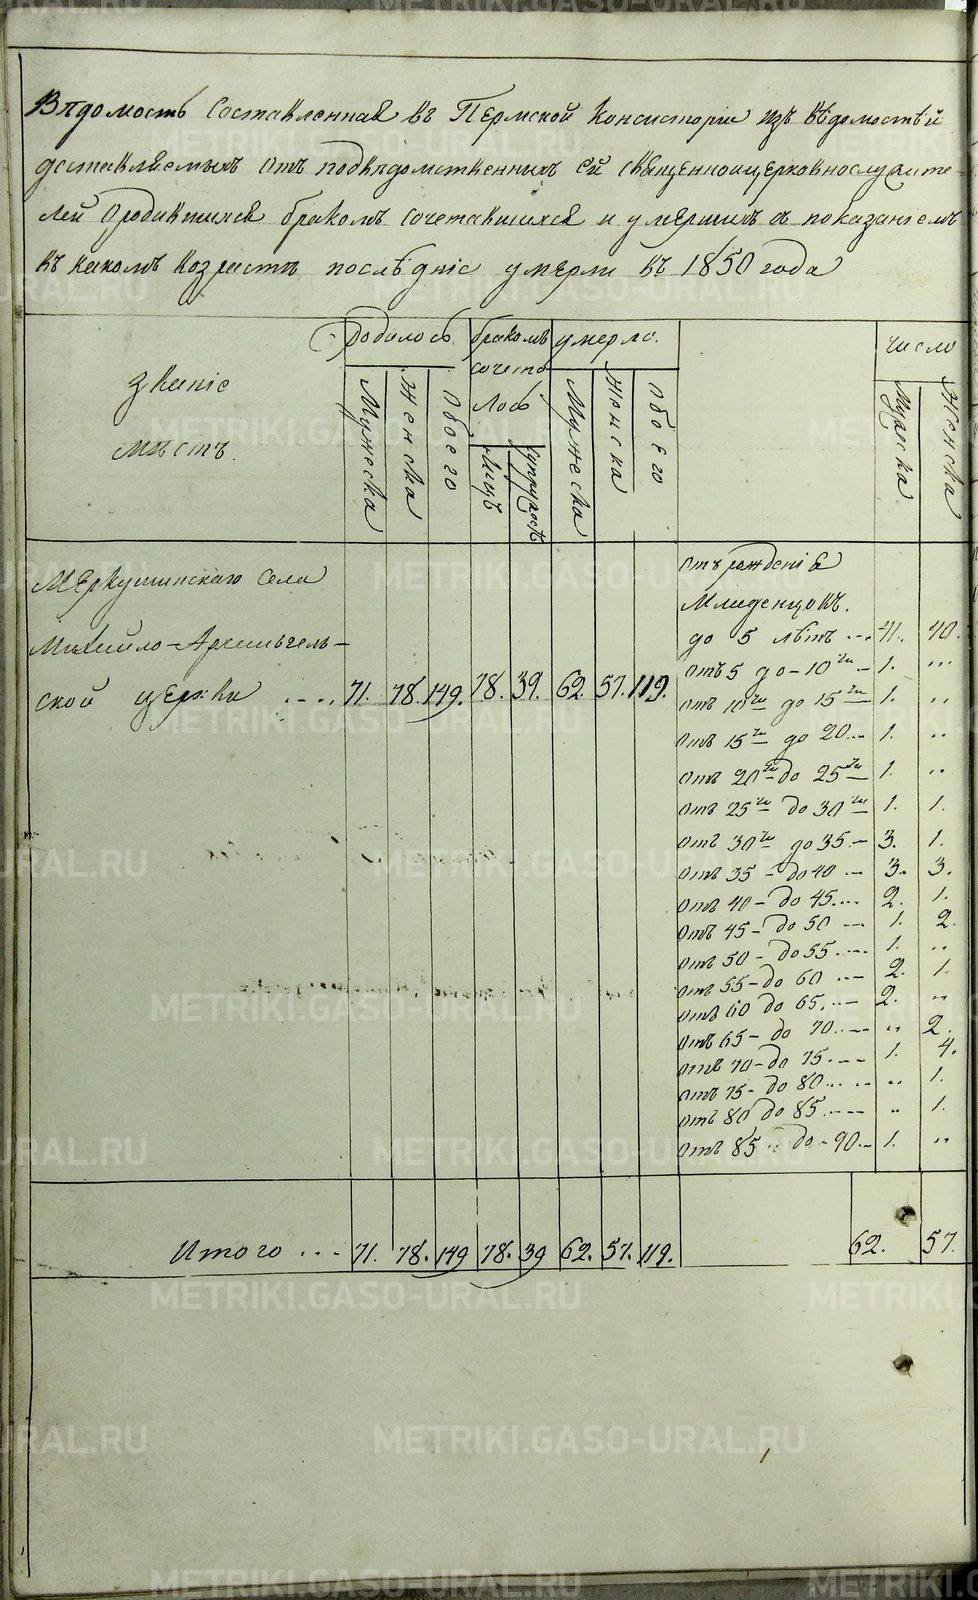 Вѣдомость Составленная въ Пермской Консисторіи изъ вѣдомостѣй
доставляемыхъ отъ подвѣдомственныхъ ей священноицерковнослужите-
лей о родившихся бракомъ сочетавшихся и умершихъ съ показаніемъ
въ какомъ возрастѣ послѣдніе умерли въ 1850 года
званіе
мѣстъ.
родилось
Мужеска
Женска
Обоего
бракомъ
сочета
лось
лицъ
супружествъ
умерло.
Мужеска
Женска
Обоего
число
Мужеска
Женска
Меркушинскаго села
Михаило-Архангель-
ской церкви ..... 71. 78. 149. 78. 39. 62. 57. 119.
отъ рожденія
Младенцовъ.
до 5 лѣтъ ... 41. 40.
отъ 5 до - 10ти - 1. ...
отъ 10ти до 15ти 1. ..
отъ 15ти до 20... 1. ..
отъ 20ти до 25ти 1. ..
отъ 25ти до 30ти 1. 1.
отъ 30ти до 35.- 3. 1.
отъ 35 - до 40 ... 3. 3.
отъ 40 - до 45.... 2. 1.
отъ 45 - до 50 ... 1. 2.
отъ 50 - до 55..... 1. ..
отъ 55 - до 60 .... 2. 1.
отъ 60 до 65.... 2. ..
отъ 65 - до 70..... .. 2.
отъ 70 - до 75..... 1. 4.
отъ 75 - до 80..... .. 1.
отъ 80 до 85..... .. 1.
отъ 85 .. до - 90.. 1. ..
Итого ... 71. 78. 149 78. 39 62. 57. 119. 62. 57.
METRIKI.GASO-URAL.RU